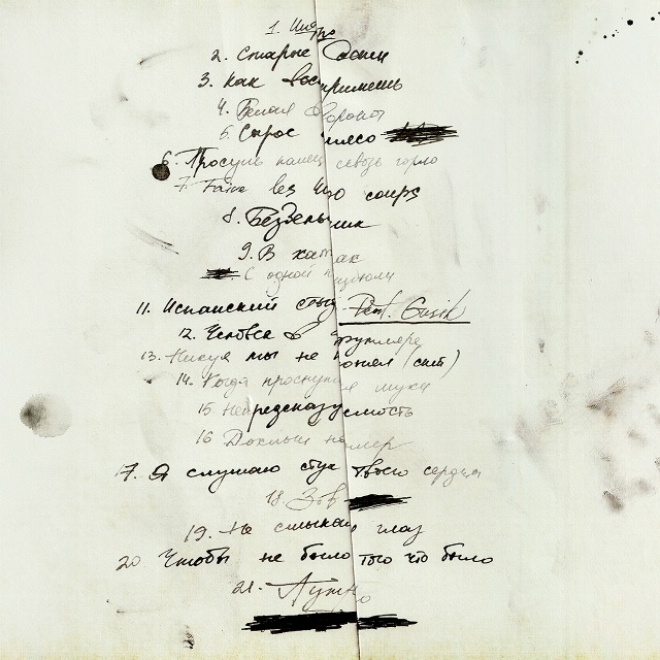 1. Интро
2. Старые Даты
3. Как воспримешь
4. Белая Ворона
5. Сырое мясо
6. Просунь палец сквозь горло
7. Faire les 400 coups
8. Бездельник
9. В хатах
С одной
11. Испанский стыд feat. Gusli
12. Человек в футляре
13. Нихуя мы не поняли (скит)
14. Когда проснутся мухи
15 Непредсказуемость
16 Дохлый номер
17. Я слушаю стук твоего сердца
18. Зов
19. Не смыкая глаз
20 Чтобы не было того что было
21. Аутро